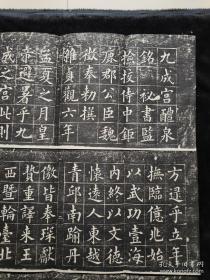 九成宮醴泉
銘 祕書監
撿挍侍中鉅
鹿郡公臣魏
徵奉勑撰
維貞觀六年
孟夏之月皇
帝避暑乎九
成之宮此則
方逮乎立年
撫臨億兆始
以武功壹海
內終以文德
懷遠人東越
青丘南踰丹
儌皆奉琛獻
贄重譯來王
西暨輪臺北